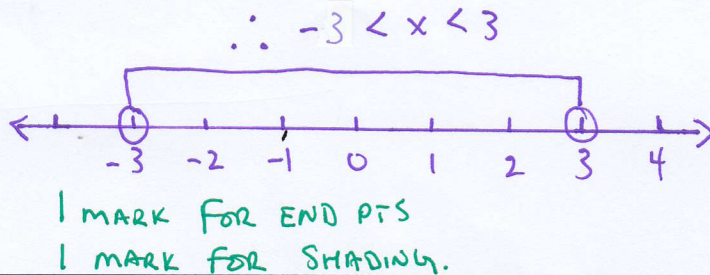 ∴ -3 < x < 3
-3 -2 -1 0 1 2 3 4
1 MARK FOR END PTS
1 MARK FOR SHADING.